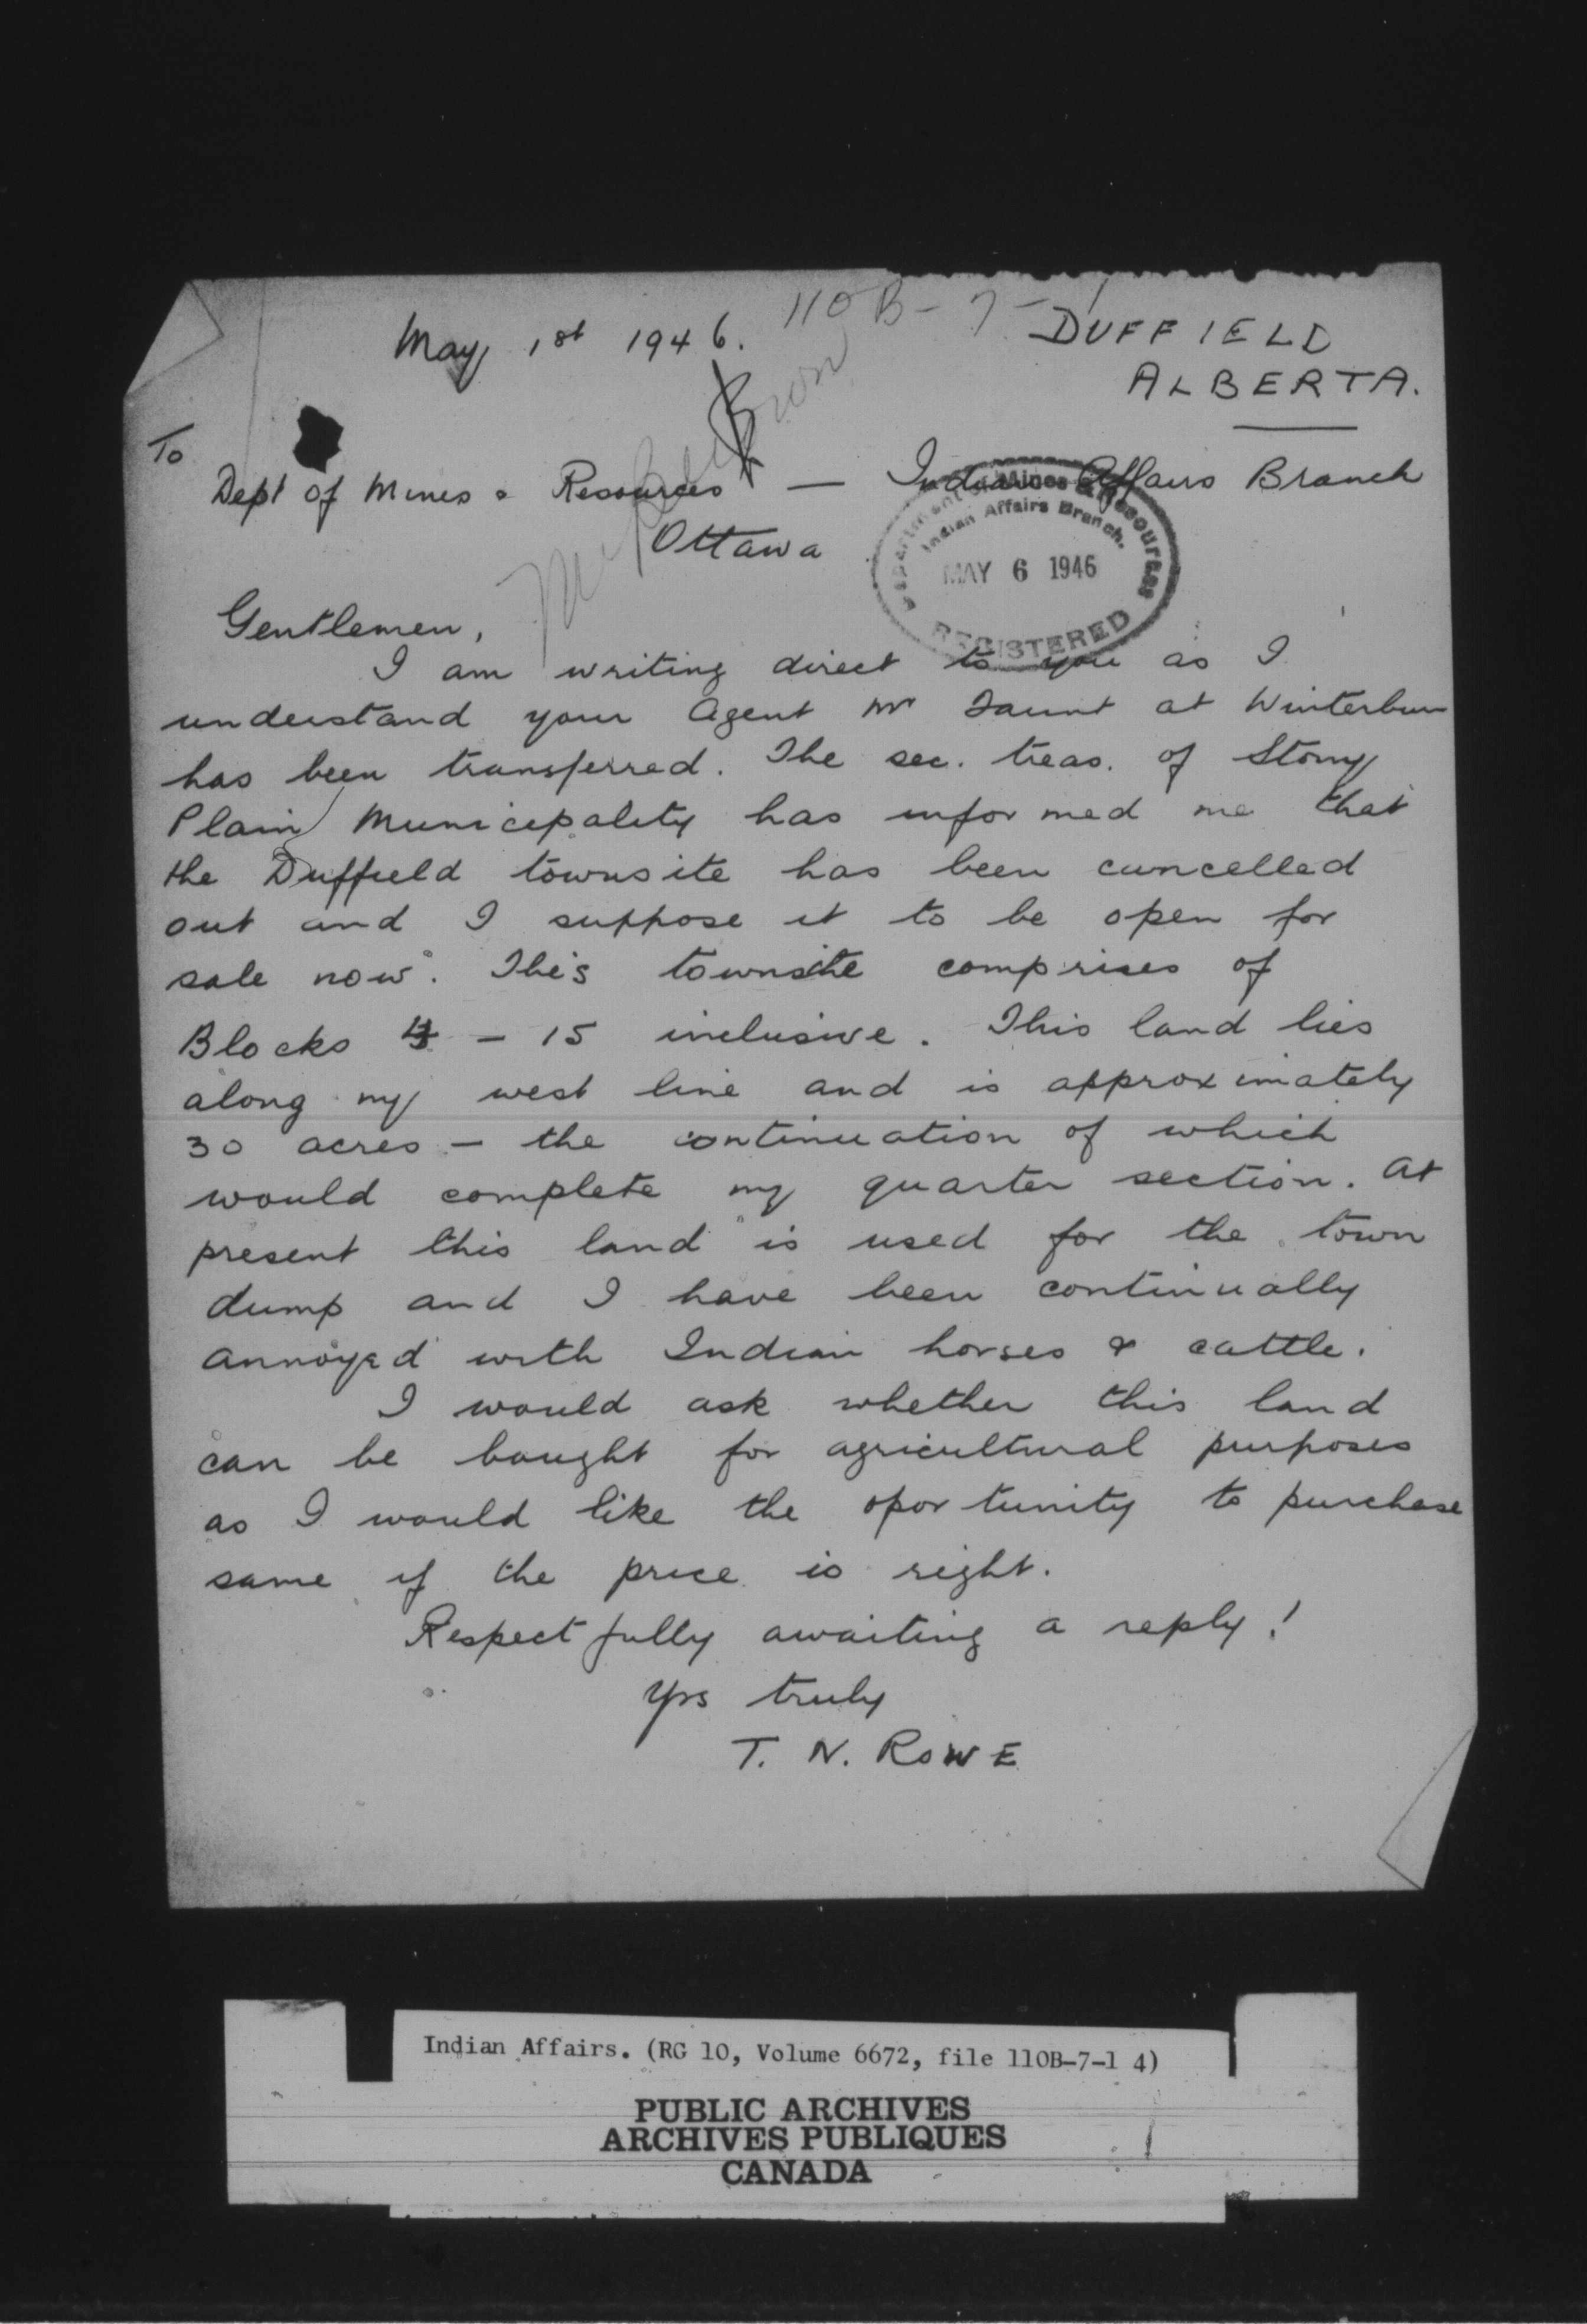 110B-7-1
May 1st 1946.
DUFFIELD
ALBERTA.
To
Dept of Mines & Resources — Indian Affairs Branch
Ottawa
Department of Mines & Resources
Indian Affairs Branch.
MAY 6 1946
REGISTERED
Gentlemen,
I am writing direct to you as I
understand your Agent Mr Jaunt at Winterburn
has been transferred. The sec. treas. of Stony
Plain Municipality has informed me that
the Duffield townsite has been cancelled
out and I suppose it to be open for
sale now. This townsite comprises of
Blocks 4 - 15 inclusive. This land lies
along my west line and is approximately
30 acres - the continuation of which
would complete my quarter section. At
present this land is used for the town
dump and I have been continually
annoyed with Indian horses & cattle.
I would ask whether this land
can be bought for agricultural purposes
as I would like the oportunity to purchase
same if the price is right.
Respectfully awaiting a reply!
Yrs truly
T. N. ROWE
Indian Affairs. (RG 10, Volume 6672, file 110B-7-1 4)
PUBLIC ARCHIVES
ARCHIVES PUBLIQUES
CANADA